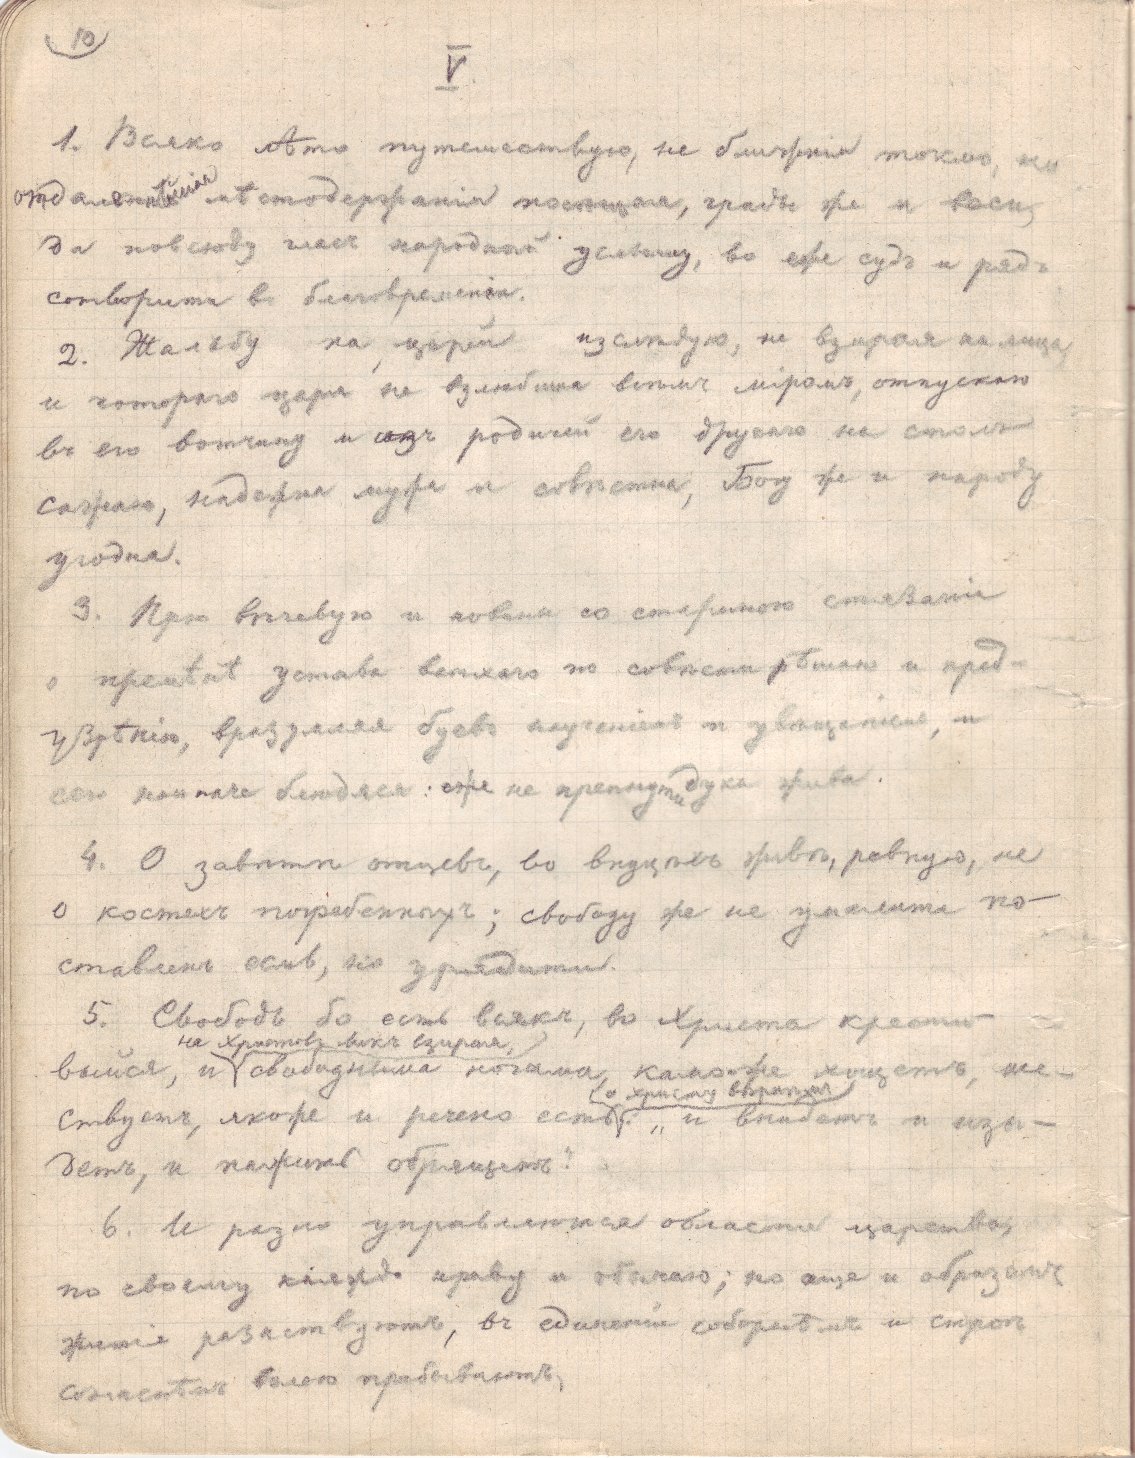 10
V.
1. Всяко лѣто путешествую, не ближнія токмо, но
отдаленнѣйшія мѣстодержанія посѣщая, грады же и веси,
да повсюду гласъ народный услышу, во еже судъ и рядъ
сотворити во благовременіи.
2. Жалобу на царей изслѣдую, не взирая на лица,
и которого царя не взлюбиша всѣмъ міромъ, отпускаю
въ его вотчину и изъ родичей его другаго на столъ
сажаю, надежна мужа и совѣстна, Богу же и народу
угодна.
3. Прю вѣчевую и новины со стариною стязаніе
о премѣнѣ устава ветхаго по совѣсти рѣшаю и пред-
узрѣнію, вразумляя буевъ наученіемъ и увѣщаніемъ, и
сего наипаче блюдяся: еже не препнути духа жива.
4. О завѣтѣ отцевъ, во внуцѣхъ живѣ, ревную, не
о костехъ погребенныхъ; свободу же не умалити по-
ставленъ есмь, но урядити.
5. Свободь бо есть всякъ, во Христа крести-
на Христовъ ликъ взирая,
выйся, и свободныма ногама, каможе хощетъ, ше-
о Христу вѣрныхъ
ствуетъ, якоже и речено есть: „и внидетъ и изы-
детъ, и пажить обрящетъ“.
6. И разно управляются области царства,
по своему каяждо нраву и обычаю; но аще и образомъ
житія разнствуютъ, въ единеніи соборнѣмъ и строѣ
согласнѣмъ волею пребываютъ.